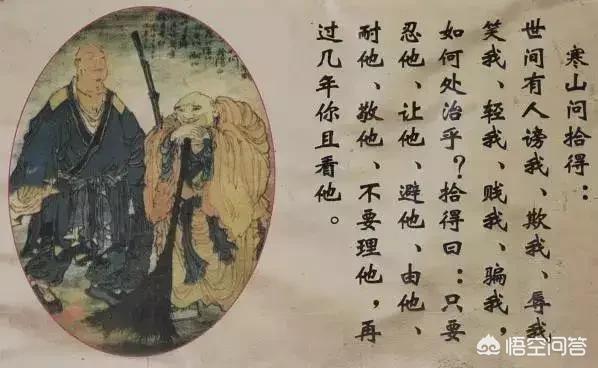 寒山问拾得：
世间有人谤我、欺我、辱我
笑我、轻我、贱我、骗我，
如何处治乎？拾得曰：只要
忍他、让他、避他、由他、
耐他、敬他、不要理他，再
过几年你且看他。
悟空问答